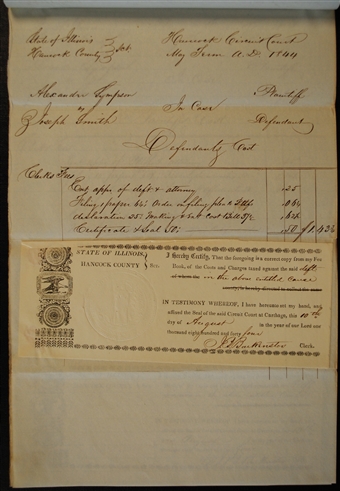 State of Illinois
Hancock County } Sct.
Hancock Circuit Court
May Term A.D. 1844
Alexander Sympson Plaintiff
vs In Case
Joseph Smith Defendant
Defendants Cost
Clerks Fees
Ent appr of deft & attorney .25
Filing 1 paper
declaration 25; &
Certificate & Seal 50; .50 $1.43
STATE OF ILLINOIS,
HANCOCK COUNTY } Sct:
I Hereby Certify, That the foregoing is a correct copy from my Fee
Book, of the Costs and Charges taxed against the said deft.
in the above entitled Cause
IN TESTIMONY WHEREOF, I have hereunto set my hand, and
affixed the Seal of the said Circuit Court at Carthage, this 10th
day of August in the year of our Lord one
thousand eight hundred and forty four
J B Backenstos Clerk.